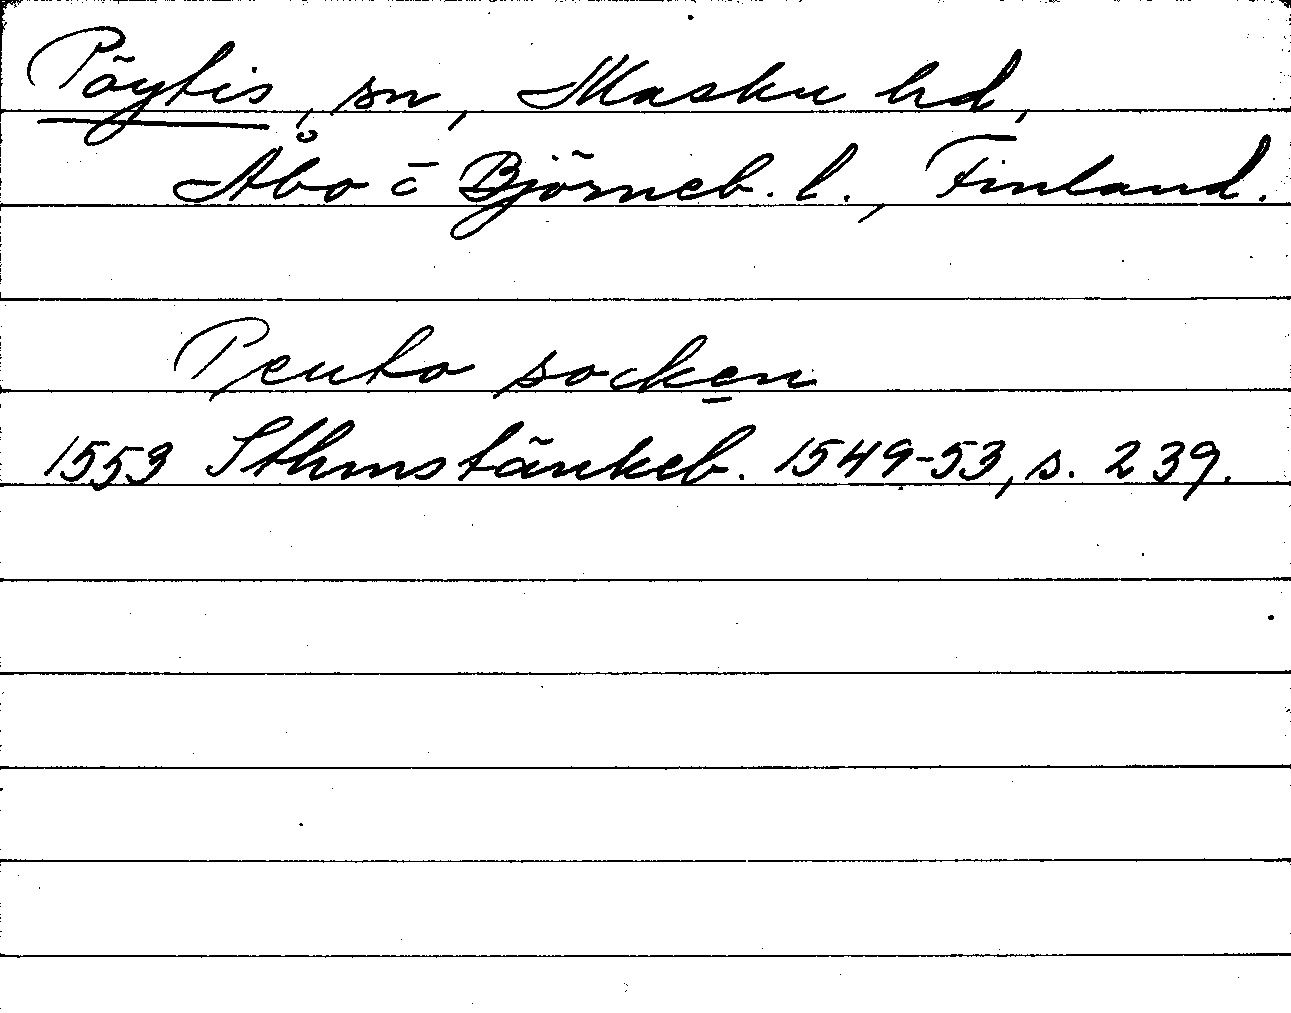 Pöytis, sn, Masku hd,
Åbo o Björneb. l., Finland.
Peuto socken
1553 Sthms tänkeb. 1549-53, s. 239.